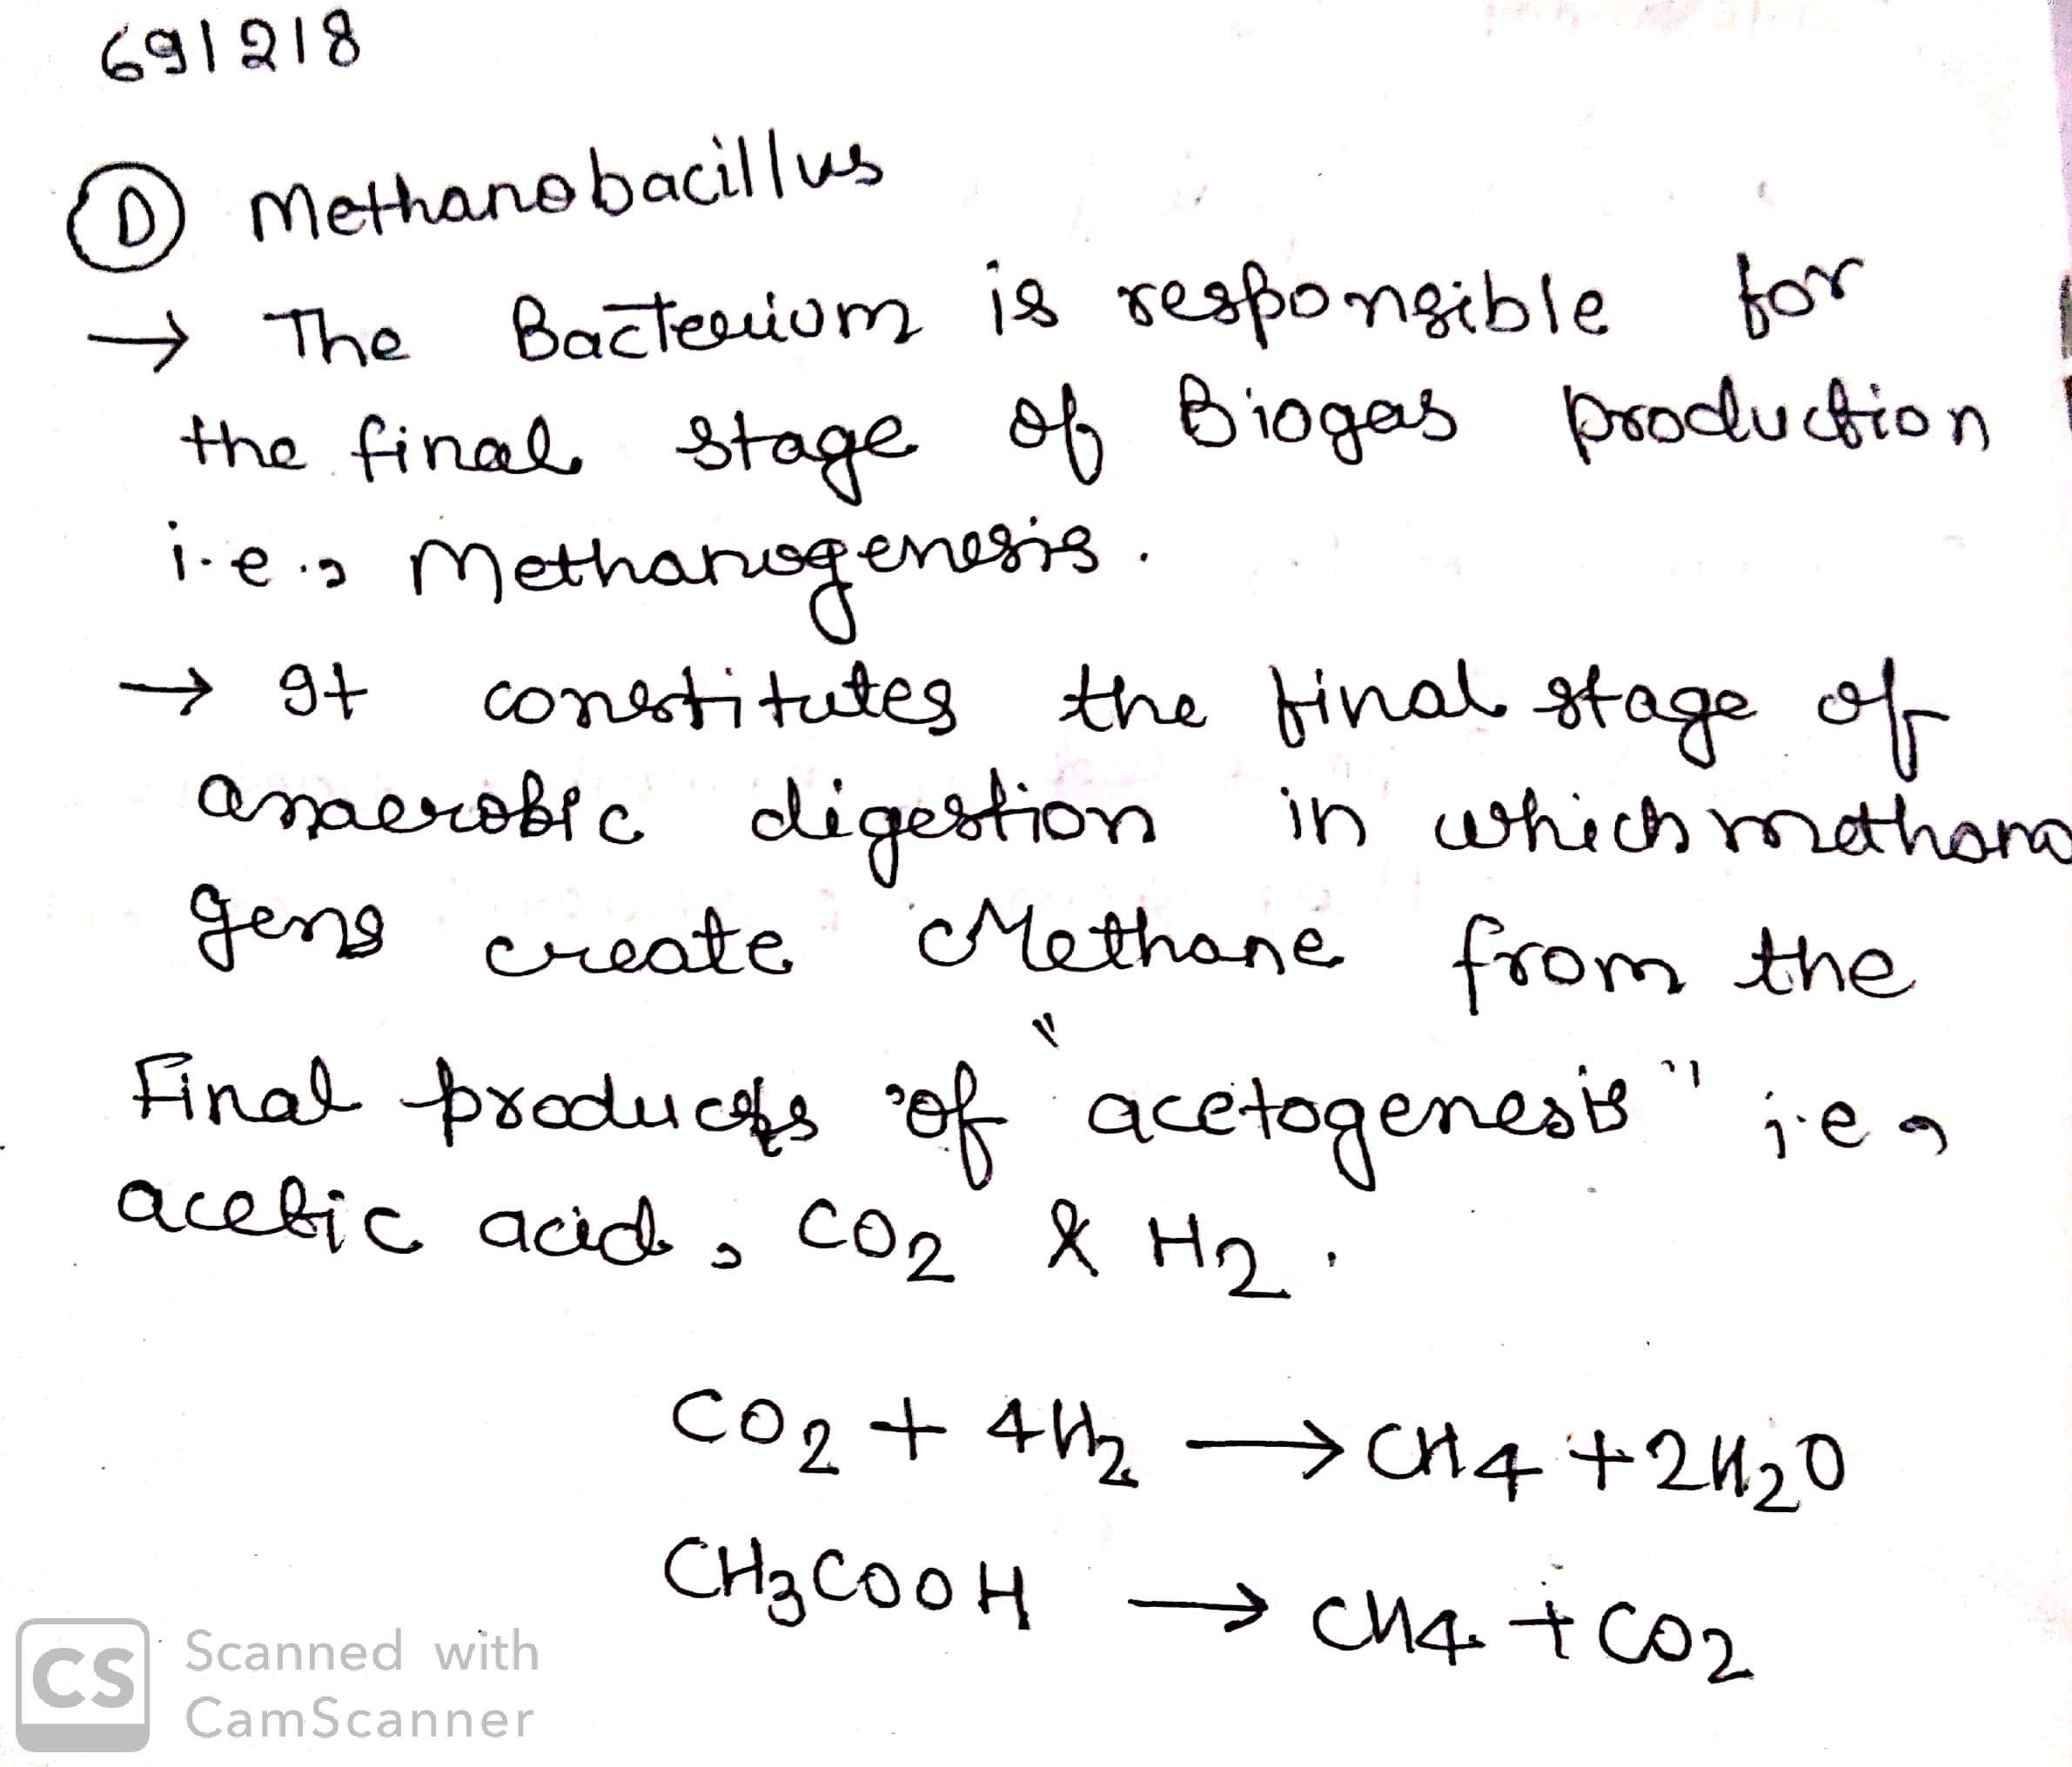 691218
D Methanobacillus
→ The Bacterium is responsible for
the final stage of Biogas production
i.e., Methanogenesis.
→ It constitutes the final stage of
anaerobic digestion in which methano
gens create Methane from the
Final products of "acetogenesis" i.e,
acetic acid, CO2 & H2.
CO2 + 4H2 → CH4 + 2H2O
CH3COOH → CH4 + CO2
CS Scanned with
CamScanner